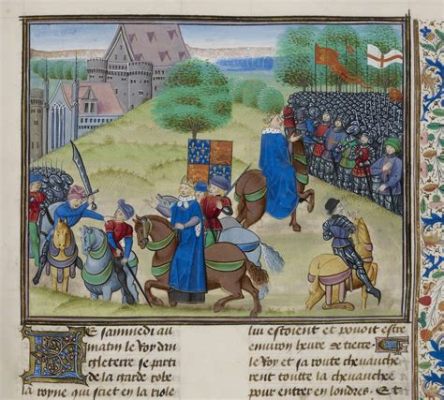 Le samnedi au
matin le Roy dan
gleterre se parti
de la garde robe
la royne qui siet en la riole
lui estoient et pouoit estre
environ heure de tierce
le Roy et sa route chevauche
rent toutte la chevauchee
pour entrer en londres. Et